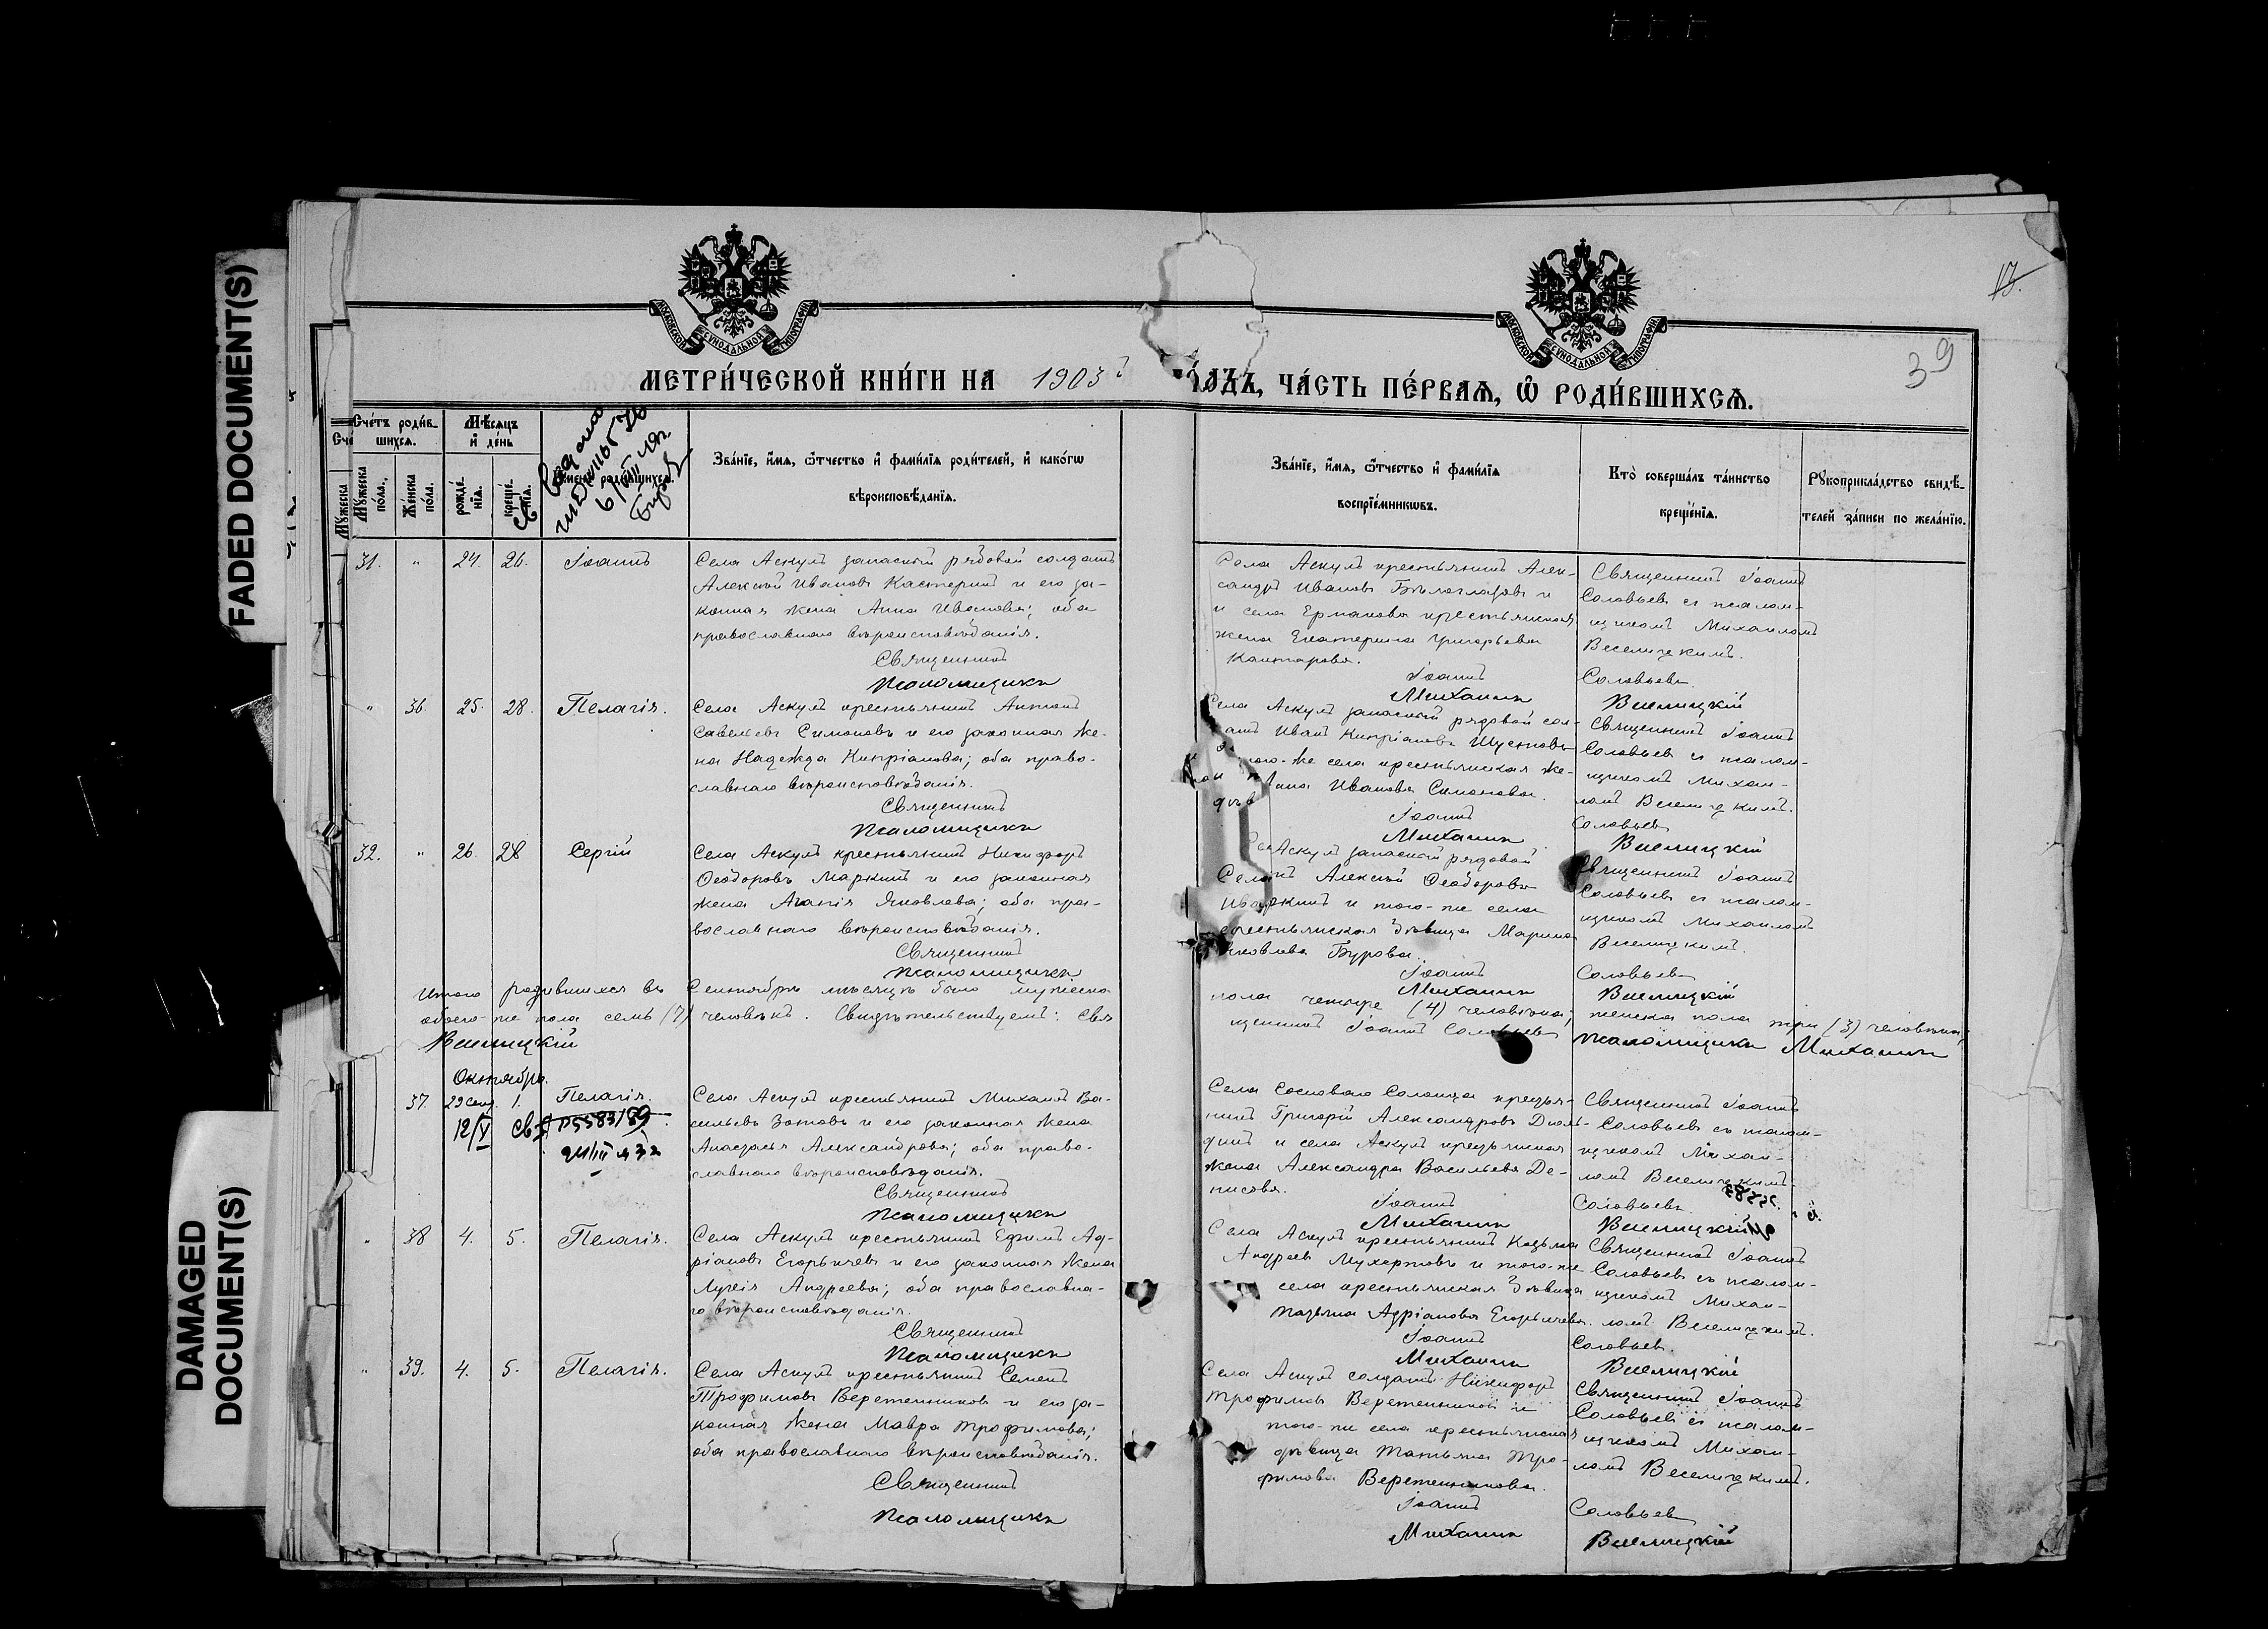 FADED DOCUMENT(S)
DAMAGED
DOCUMENT(S)
МОСКОВСКОЙ СУНОДАЛЬНОЙ ТИПОГРАФІИ
МОСКОВСКОЙ СУНОДАЛЬНОЙ ТИПОГРАФІИ
13.
39
МЕТРИ́ЧЕСКОЙ КНИ́ГИ НА 1903
ЧА́СТЬ ПЕ́РВАѦ, Ѡ҆ РОДИ́ВШИХСѦ.
Сче́тъ роди́в-
шихсѧ.
Мꙋжеска
по́ла.
Же́нска
по́ла.
Мѣ́сѧцъ
и҆ де́нь
рожде́-
нїѧ.
креще́-
нїѧ.
роди́вшихсѧ.
Зва́нїе, и҆́мѧ, ѻ҆́тчество и҆ фами́лїѧ роди́телей, и҆ како́гѡ
вѣроисповѣ́данїѧ.
Зва́нїе, и҆́мѧ, ѻ҆́тчество и҆ фами́лїѧ
воспрїе́мникѡвъ.
Кто̀ соверша́лъ та́инство
креще́нїѧ.
Рꙋкоприкла́дство свидѣ́-
телей за́писи по жела́нїю.
31. " 24. 26. Іоаннъ
Села Аскулъ запасный рядовой солдатъ
Алексѣй Ивановъ Кастеринъ и его за-
конная жена Анна Иванова; оба
православнаго вѣроисповѣданія.
Священникъ
Псаломщикъ
Села Аскулъ крестьянинъ Алек-
сандръ Ивановъ Бѣлоглазовъ и
и села Ермаково крестьянская
жена Екатерина Григорьева
Іоаннъ
Михаилъ
Священникъ Іоаннъ
Соловьевъ съ псалом-
щикомъ Михаиломъ
Веселицкимъ.
Соловьевъ
Веселицкій
" 36. 25. 28. Пелагія.
Села Аскулъ крестьянинъ Антонъ
Савельевъ Симоновъ и его законная же-
на Надежда Кипріанова; оба право-
славнаго вѣроисповѣданія.
Священникъ
Псаломщикъ
Села Аскулъ запасный рядовой сол-
Иванъ Кипріановъ Шустовъ
того-же села крестьянская
Иванова Симонова.
Іоаннъ
Михаилъ
Священникъ Іоаннъ
Соловьевъ съ псалом-
щикомъ Михаи-
ломъ Веселицкимъ.
Соловьевъ
Веселицкій
32. " 26. 28 Сергій
Села Аскулъ крестьянинъ Никифоръ
Ѳеодоровъ Маркинъ и его законная
жена Агапія Яковлева; оба пра-
вославнаго вѣроисповѣданія.
Священникъ
Псаломщикъ
Аскулъ запасный рядовой
Алексѣй Ѳеодоровъ
и того-же села
крестьянская дѣвица Марина
Яковлева Бурова.
Іоаннъ
Михаилъ
Священникъ Іоаннъ
Соловьевъ съ псалом-
щикомъ Михаиломъ
Веселицкимъ.
Соловьевъ
Веселицкій
Итого родившихся въ Сентябрѣ мѣсяцѣ было мужеска пола четыре (4) человѣка; женска пола три (3) человѣка;
обоего-же пола семь (7) человѣкъ. Свидѣтельствуемъ: Священникъ Іоаннъ Соловьевъ Псаломщикъ Михаилъ
Веселицкій
Октябрь.
37. 29 Сент. 1. Пелагія.
12/V
Села Аскулъ крестьянинъ Михаилъ Ва-
сильевъ Зотовъ и его законная жена
Анастасья Александрова; оба право-
славнаго вѣроисповѣданія.
Священникъ
Псаломщикъ
Села Сосноваго Солонца крестья-
нинъ Григорій Александровъ
и села Аскулъ крестьянская
жена Александра Васильева Де-
нисова.
Іоаннъ
Михаилъ
Священникъ Іоаннъ
Соловьевъ съ псалом-
щикомъ Михаи-
ломъ Веселицкимъ.
Соловьевъ
Веселицкій
" 38 4. 5. Пелагія.
Села Аскулъ крестьянинъ Ефимъ Ад-
ріановъ Егорычевъ и его законная жена
Лукія Андреева; оба православна-
го вѣроисповѣданія.
Священникъ
Псаломщикъ
Села Аскулъ крестьянинъ Козьма
Андреевъ Мухортовъ и того-же
села крестьянская дѣвица
Адріанова Егорычева.
Іоаннъ
Михаилъ
Священникъ Іоаннъ
Соловьевъ съ псалом-
щикомъ Михаи-
ломъ Веселицкимъ.
Соловьевъ.
Веселицкій
" 39. 4. 5. Пелагія.
Села Аскулъ крестьянинъ Семенъ
Трофимовъ Веретенниковъ и его за-
конная жена Мавра Трофимова;
оба православнаго вѣроисповѣданія.
Священникъ
Псаломщикъ
Села Аскулъ солдатъ Никифоръ
Трофимовъ Веретенниковъ и
того-же села крестьянская
дѣвица Татьяна Тро-
фимова Веретенникова.
Іоаннъ
Михаилъ
Священникъ Іоаннъ
Соловьевъ съ псалом-
щикомъ Михаи-
ломъ Веселицкимъ.
Соловьевъ
Веселицкій